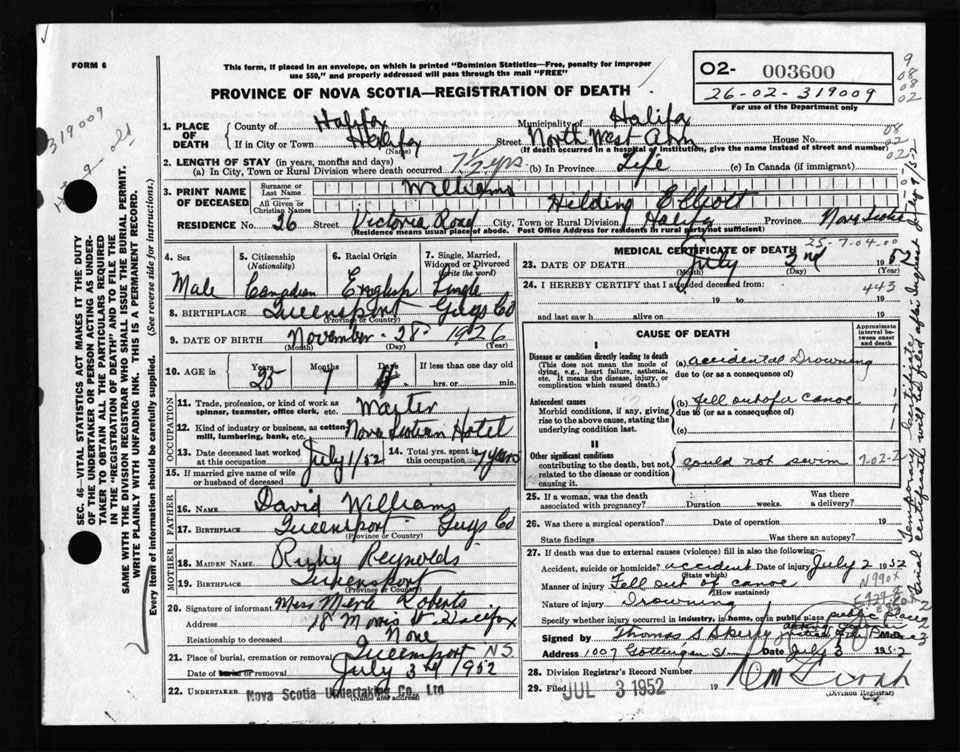 FORM 6
This form, if placed in an envelope, on which is printed "Dominion Statistics—Free, penalty for improper
use $50," and properly addressed will pass through the mail "FREE"
PROVINCE OF NOVA SCOTIA—REGISTRATION OF DEATH
02- 003600
26-02-319009
For use of the Department only
319009
1. PLACE OF DEATH
County of Halifax Municipality of Halifax
If in City or Town Halifax (Name) Street North West Arm House No.
(If death occurred in a hospital or institution, give the name instead of street and number)
2. LENGTH OF STAY (in years, months and days)
(a) In City, Town or Rural Division where death occurred 7½ yrs (b) In Province Life (c) In Canada (if immigrant)
3. PRINT NAME OF DECEASED
Surname or Last Name Williams
All Given or Christian Names Hilding Elliott
RESIDENCE No. 26 Street Victoria Road City, Town or Rural Division Halifax Province Nova Scotia
(Residence means usual place of abode. Post Office Address for residents in rural parts not sufficient)
4. Sex Male
5. Citizenship (Nationality) Canadian
6. Racial Origin English
7. Single, Married, Widowed or Divorced (Write the word) Single
8. BIRTHPLACE Queensport Guys Co
(Province or Country)
9. DATE OF BIRTH November 28 1926
(Month) (Day) (Year)
10. AGE in Years 25 Months 7 Days If less than one day old
hrs. or min.
OCCUPATION
11. Trade, profession, or kind of work as
spinner, teamster, office clerk, etc. Waiter
12. Kind of industry or business, as cotton
mill, lumbering, bank, etc. Nova Scotian Hotel
13. Date deceased last worked
at this occupation July 1/52
14. Total yrs. spent in
this occupation 7 years
15. If married give name of wife
or husband of deceased
FATHER
16. NAME David Williams
17. BIRTHPLACE Queensport Guys Co
(Province or Country)
MOTHER
18. MAIDEN NAME Ruby Reynolds
19. BIRTHPLACE Queensport
(Province or Country)
20. Signature of informant Miss Merle Roberts
Address 18 Morris St Halifax
Relationship to deceased None
21. Place of burial, cremation or removal Queensport NS
Date of burial or removal July 3rd 1952
22. UNDERTAKER Nova Scotia Undertaking Co., Ltd
(Name and address)
MEDICAL CERTIFICATE OF DEATH
25-7-04-00
23. DATE OF DEATH July 2nd 1952
(Month) (Day) (Year)
443
24. I HEREBY CERTIFY that I attended deceased from:
19 to 19
and last saw h alive on 19
CAUSE OF DEATH
Approximate interval between onset and death
I
Disease or condition directly leading to death
(This does not mean the mode of dying, e.g., heart failure, asthenia, etc. It means the disease, injury, or complication which caused death.)
(a) accidental Drowning
due to (or as a consequence of)
Antecedent causes
Morbid conditions, if any, giving rise to the above cause, stating the underlying condition last.
(b) Fell out of a canoe
due to (or as a consequence of)
(c)
II
Other significant conditions
contributing to the death, but not related to the disease or condition causing it.
could not swim
25. If a woman, was the death
associated with pregnancy? Duration weeks. Was there a delivery?
26. Was there a surgical operation? Date of operation 19
State findings Was there an autopsy?
27. If death was due to external causes (violence) fill in also the following:—
Accident, suicide or homicide? accident Date of injury July 2 1952
(State which)
Manner of injury Fell out of canoe
(How sustained)
N990X
Nature of injury Drowning
Specify whether injury occurred in industry, in home, or in public place public place
Signed by Thomas S
Address 1007 Gottingen St Date July 3 1952
28. Division Registrar's Record Number
29. Filed JUL 3 1952 19
(Division Registrar)
SEC. 46—VITAL STATISTICS ACT MAKES IT THE DUTY
OF THE UNDERTAKER OR PERSON ACTING AS UNDER-
TAKER TO OBTAIN ALL THE PARTICULARS REQUIRED
IN THE "REGISTRATION OF DEATH" AND TO FILE THE
SAME WITH THE DIVISION REGISTRAR WHO SHALL ISSUE THE BURIAL PERMIT.
WRITE PLAINLY WITH UNFADING INK. THIS IS A PERMANENT RECORD.
Every item of information should be carefully supplied. (See reverse side for instructions.)
Temporary Certificate
Final certificate will be filed after Inquest July 9/52